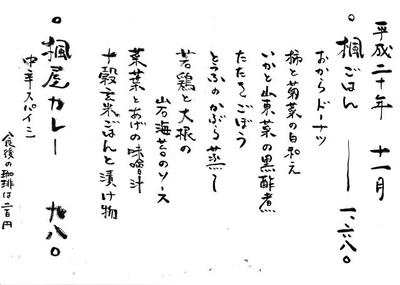 平成二十年 十一月
。楓ごはん ー 一、六八〇
おからドーナツ
柿と菊菜の白和え
いかと山東菜の黒酢煮
たたきごぼう
とうふのかぶら蒸し
若鶏と大根の
岩海苔のソース
菜菜とあげの味噌汁
十穀玄米ごはんと漬け物
。楓尾カレー 九八〇
中辛スパイシ
(食後の珈琲は二百円